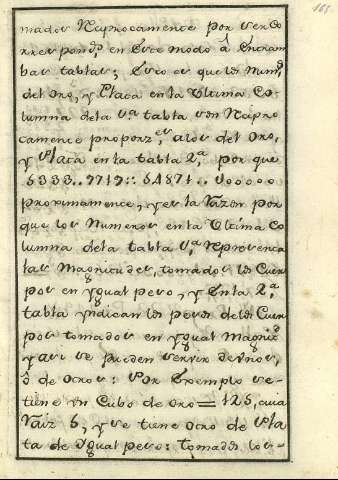 165.
mados Reciprocamente por ser Co
rrespond.s en este modo á Entram
bas tablas; Esto es que los Num.s
del Oro, y Plata en la Ultima Co-
lumna dela 1.a tabla son Recipro
camente proporz.es a los del Oro,
y Plata en la tabla 2.a por que
5333..7717:: 54874..
proximamente, y es la Razon por
que los Numeros en la Ultima Co
lumna dela tabla 1.a Representa
las Magnitudes, tomados los Cuer
pos en ygual peso, y En la 2.a
tabla yndican los pesos delos Cuer
pos tomados en ygual Magnit.d
y asi se pueden servir de unos,
ó de otros: Por Exemplo se-
tiene un Cubo de oro = 125, cuia
Raiz 5, y se tiene otro de Pla
ta de Ygual peso: Tomados los-